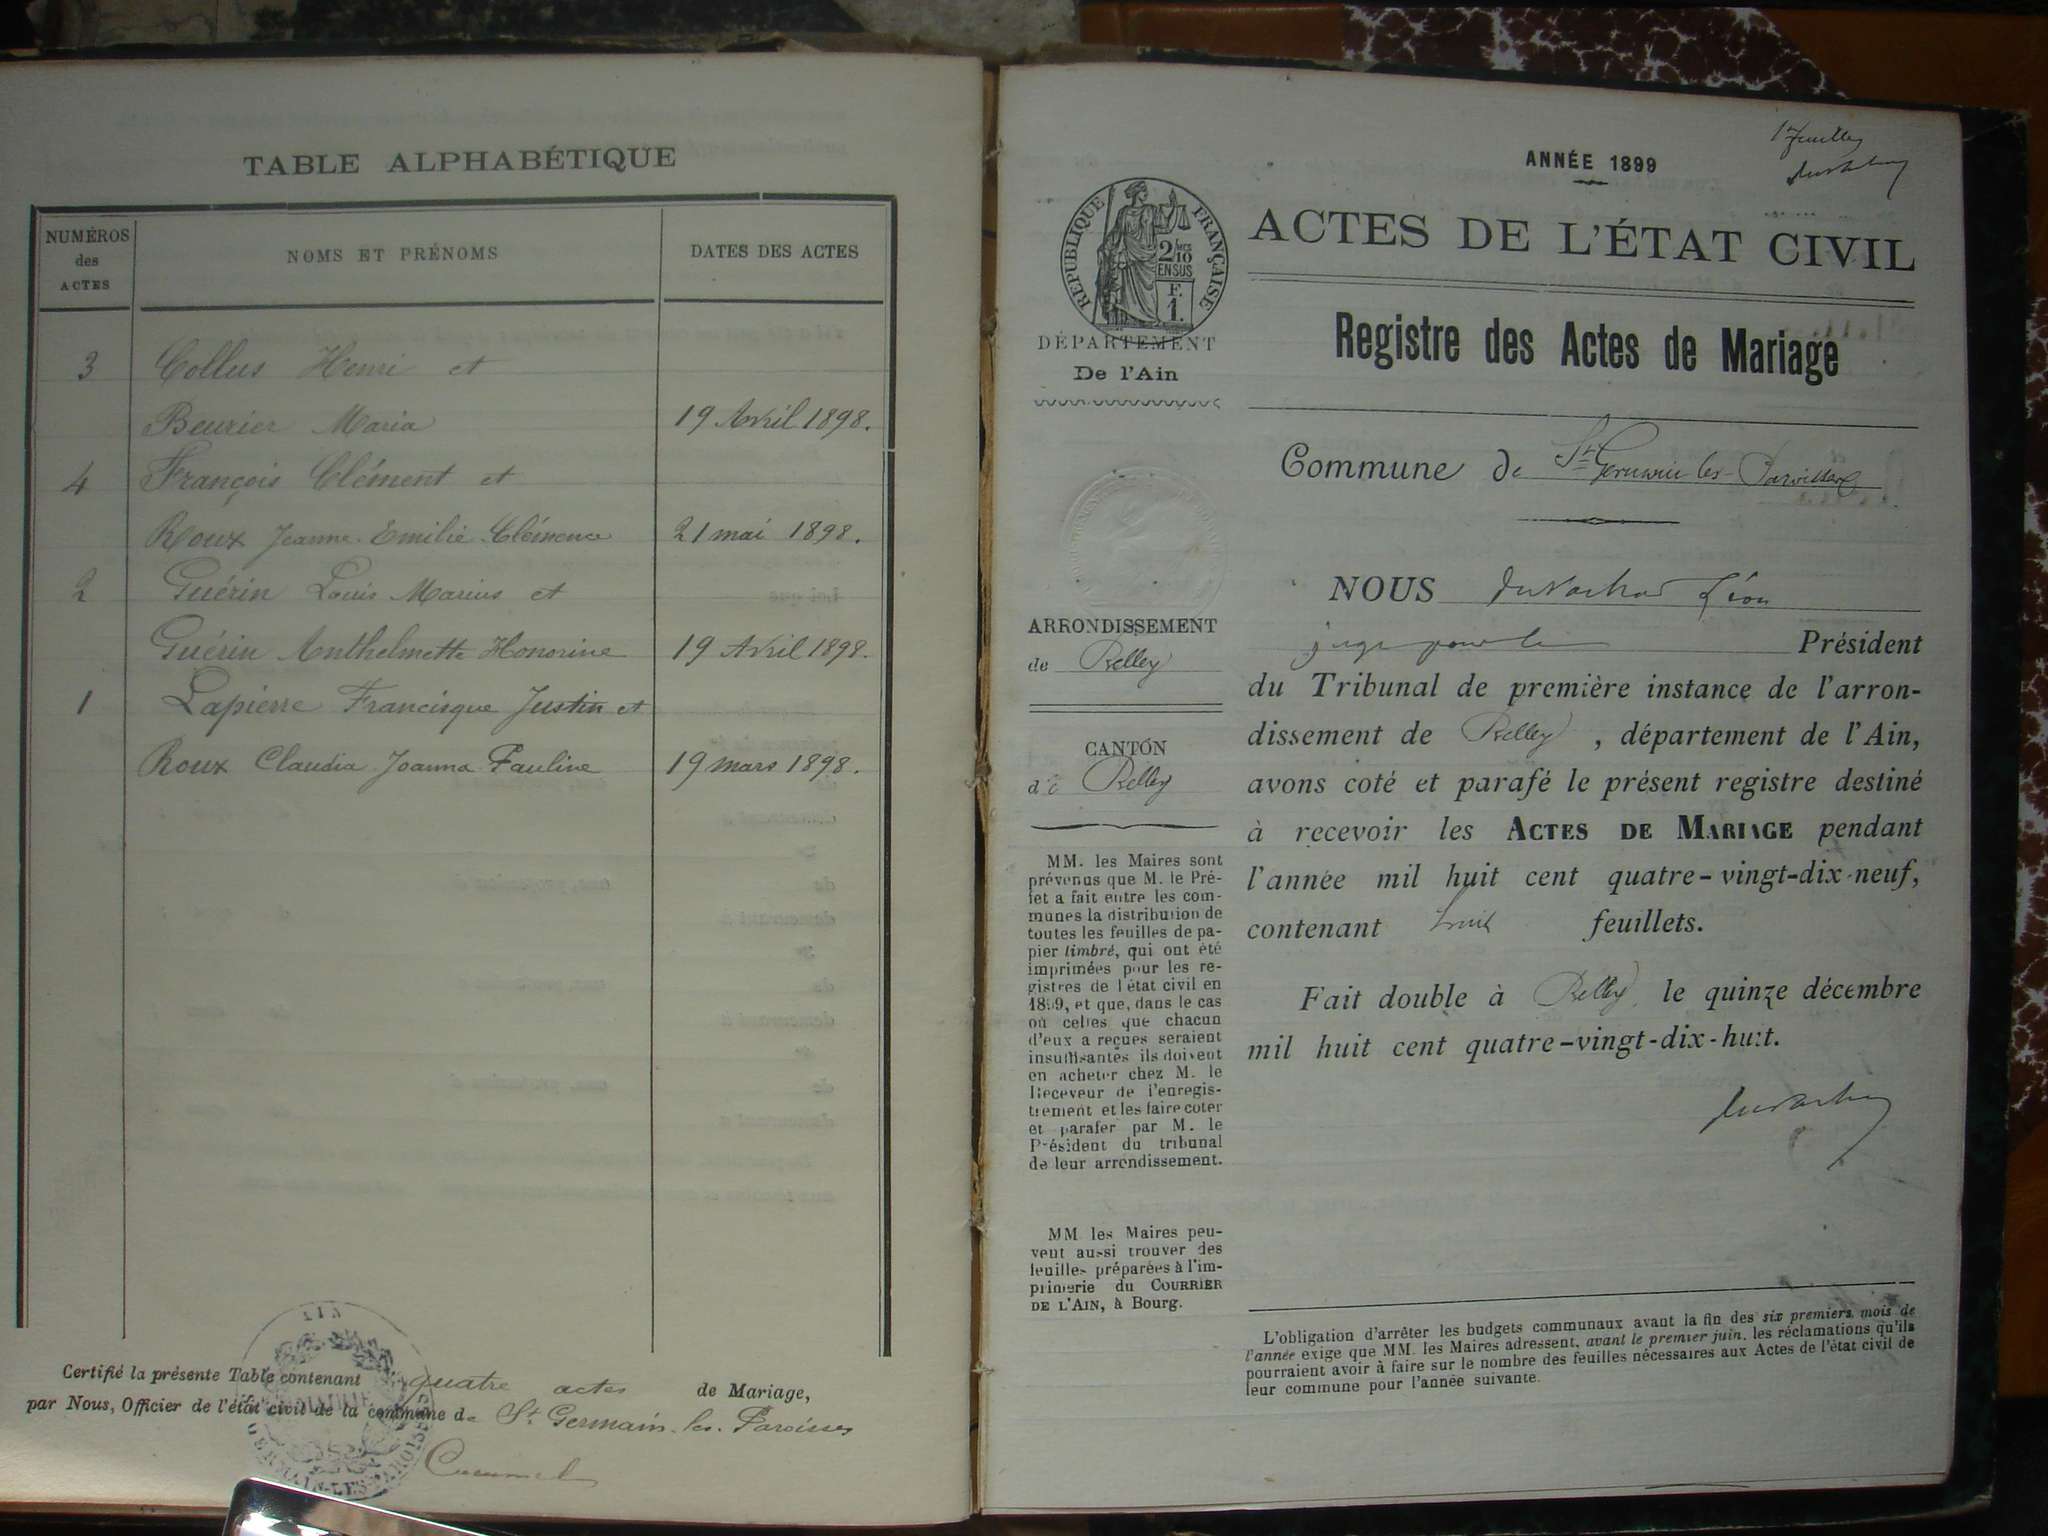 TABLE ALPHABÉTIQUE
NUMÉROS des ACTES
NOMS ET PRÉNOMS
DATES DES ACTES
3 Collus Henri et
Beurier Maria 19 Avril 1898.
4 François Clément et
Roux Jeanne Emilie Clémence 21 mai 1898.
2 Guérin Louis Marius et
Guérin Anthelmette Honorine 19 Avril 1898.
1 Lapierre Francisque Justin et
Roux Claudia Joanna Pauline 19 mars 1898.
Certifié la présente Table contenant quatre actes de Mariage,
par Nous, Officier de l'état civil de la commune de St Germain-les-Paroisses
ANNÉE 1899
RÉPUBLIQUE FRANÇAISE
2/10
EN SUS
F.
1.
ACTES DE L'ÉTAT CIVIL
Registre des Actes de Mariage
DÉPARTEMENT
De l'Ain
Commune de St Germain-les-Paroisses
ARRONDISSEMENT
de Belley
CANTON
de Belley
MM. les Maires sont
prévenus que M. le Pré-
fet a fait entre les com-
munes la distribution de
toutes les feuilles de pa-
pier timbré, qui ont été
imprimées pour les re-
gistres de l'état civil en
1899, et que, dans le cas
où celles que chacun
d'eux a reçues seraient
insuffisantes ils doivent
en acheter chez M. le
Receveur de l'enregis-
trement et les faire coter
et parafer par M. le
Président du tribunal
de leur arrondissement.
MM les Maires peu-
vent aussi trouver des
feuilles préparées à l'im-
primerie du COURRIER
DE L'AIN, à Bourg.
NOUS Léon
juge pour le Président
du Tribunal de première instance de l'arron-
dissement de Belley, département de l'Ain,
avons coté et parafé le présent registre destiné
à recevoir les ACTES DE MARIAGE pendant
l'année mil huit cent quatre-vingt-dix-neuf,
contenant huit feuillets.
Fait double à Belley, le quinze décembre
mil huit cent quatre-vingt-dix-huit.
L'obligation d'arrêter les budgets communaux avant la fin des six premiers mois de
l'année exige que MM. les Maires adressent, avant le premier juin, les réclamations qu'ils
pourraient avoir à faire sur le nombre des feuilles nécessaires aux Actes de l'état civil de
leur commune pour l'année suivante.